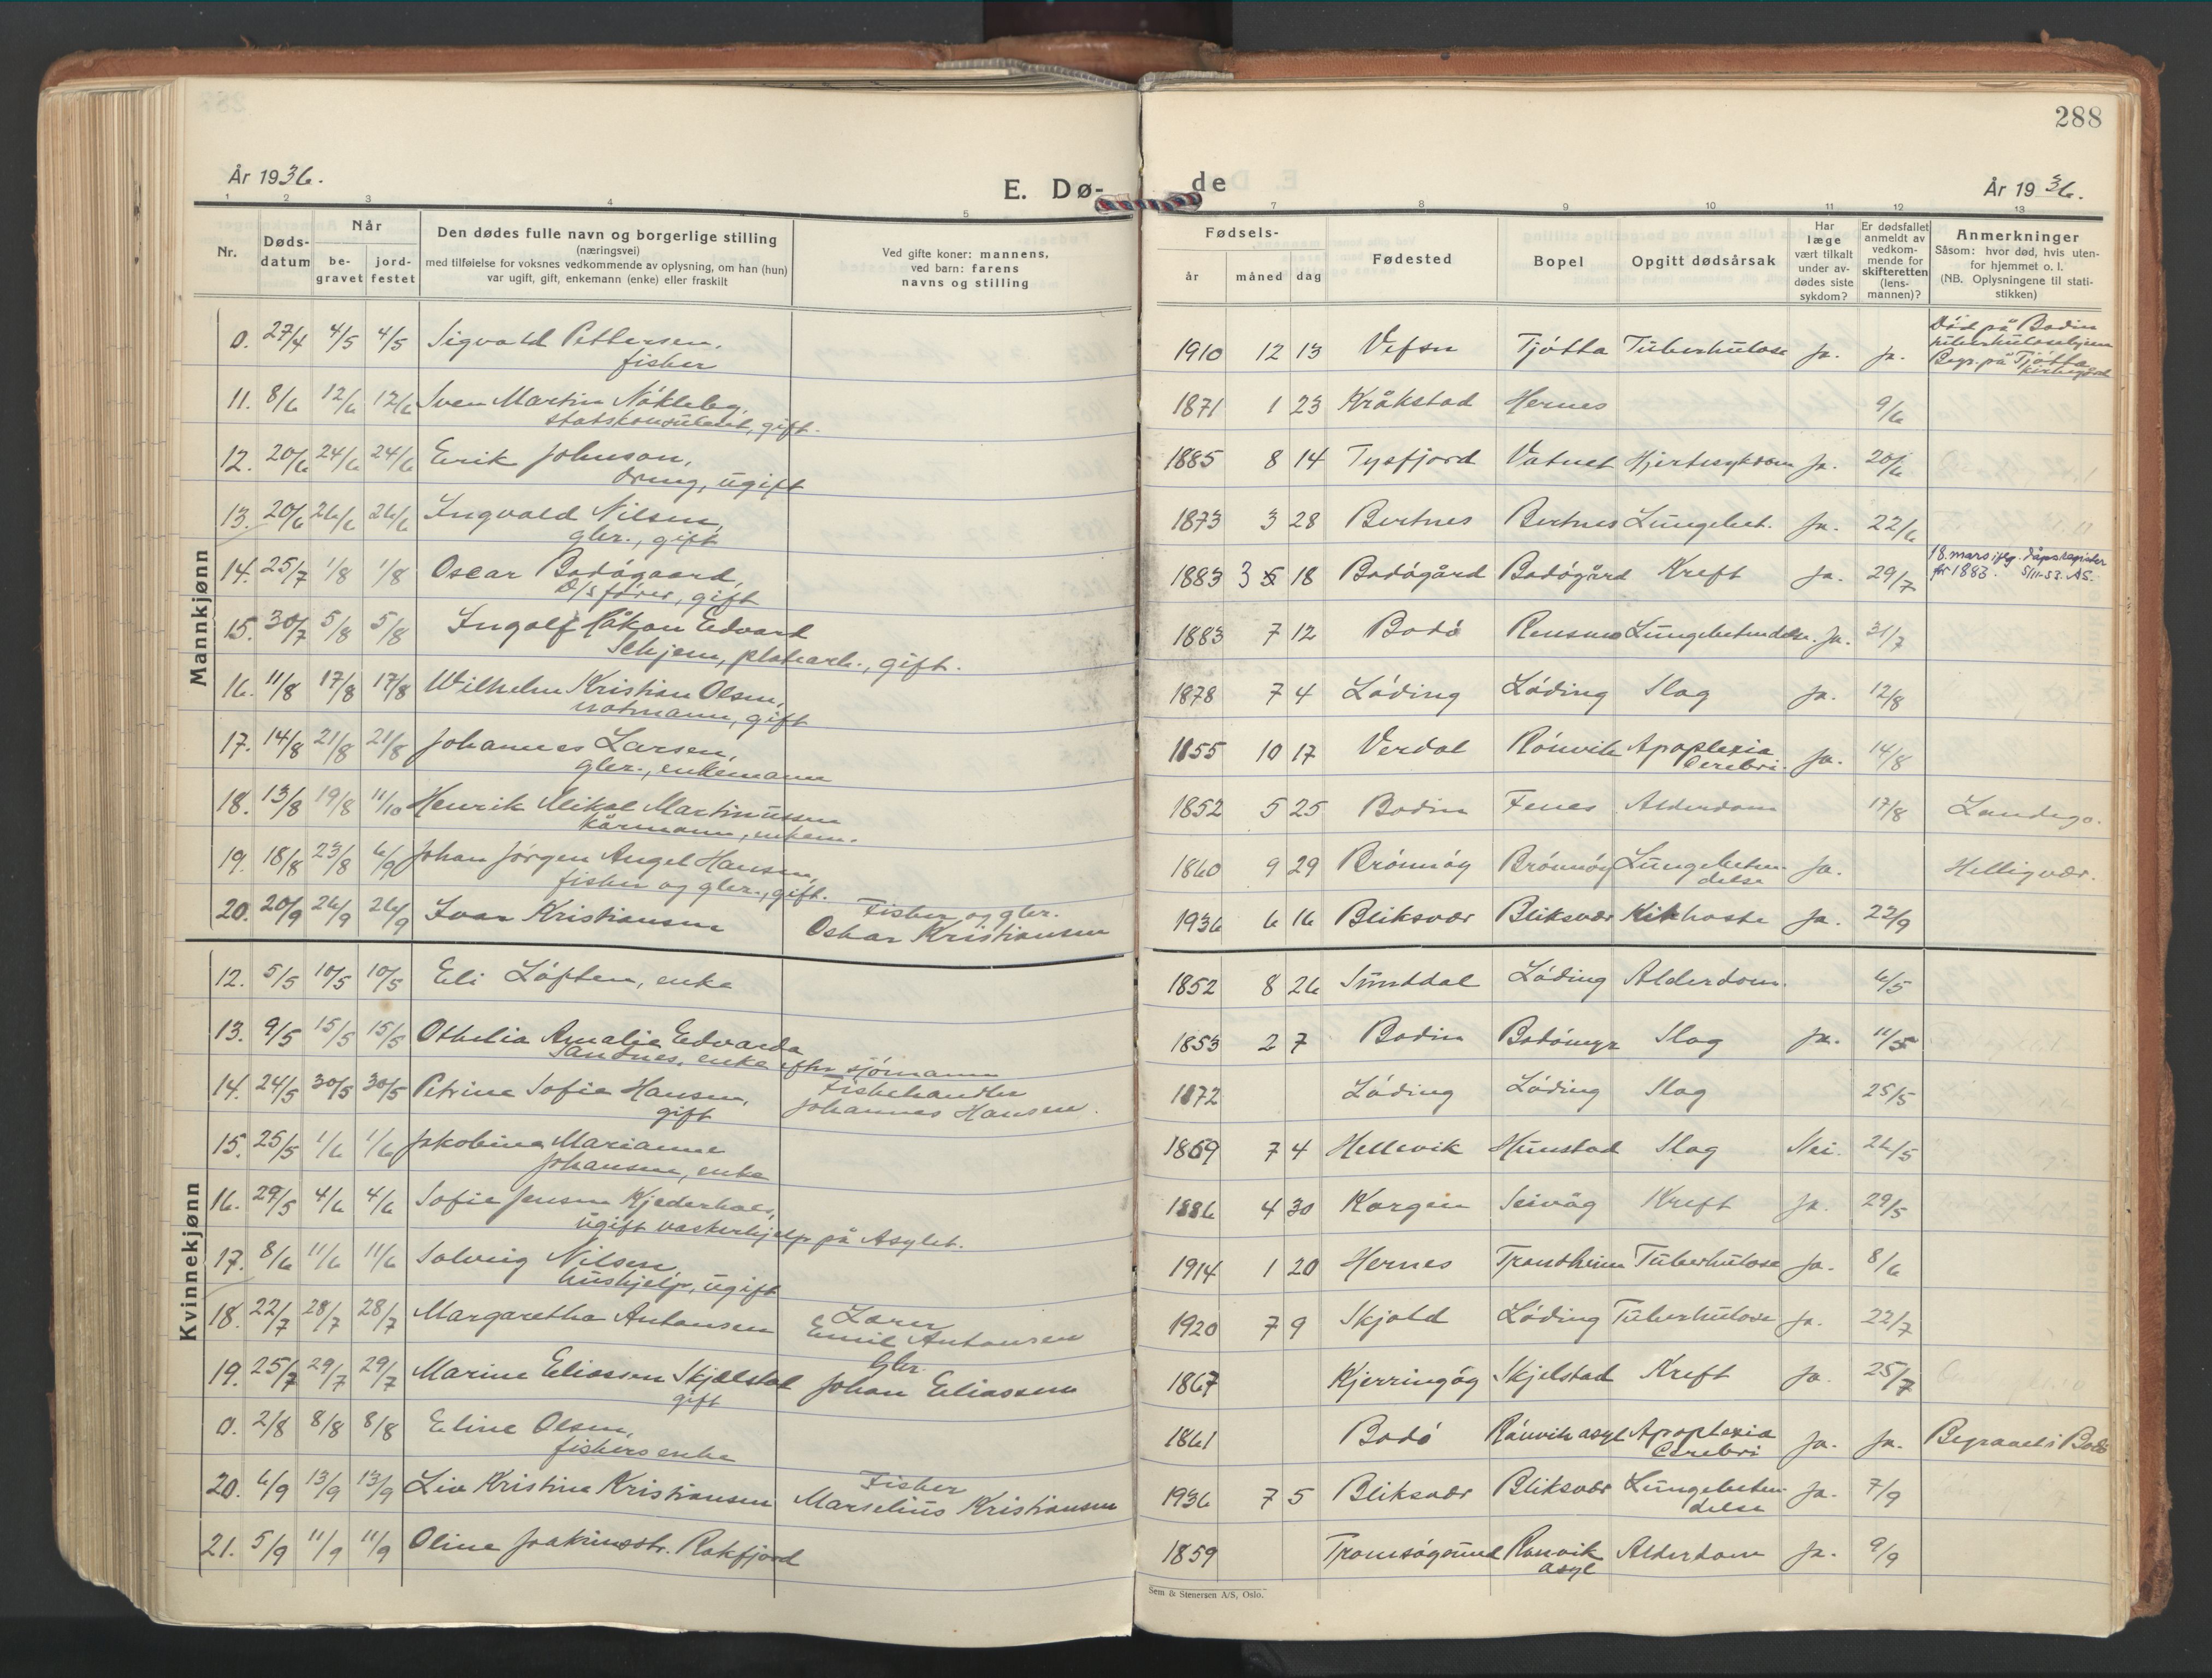 288
År 1936.
E. Dø-
de
År 1936.
1 2 3 4 5 7 8 9 10 11 12 13
Nr.
Døds-
datum
Når
be-
gravet
jord-
festet
Den dødes fulle navn og borgerlige stilling
(næringsvei)
med tilføielse for voksnes vedkommende av oplysning, om han (hun)
var ugift, gift, enkemann (enke) eller fraskilt
Ved gifte koner: mannens,
ved barn: farens
navns og stilling
Fødsels-
år måned dag
Fødested
Bopel
Opgitt dødsårsak
Har
læge
vært tilkalt
under av-
dødes siste
sykdom?
Er dødsfallet
anmeldt av
vedkom-
mende for
skifteretten
(lens-
mannen)?
Anmerkninger
Såsom: hvor død, hvis uten-
for hjemmet o. l.
(NB. Oplysningene til stati-
stikken)
Mannkjønn
0. 27/4 4/5 4/5 Sigvald Pettersen, 1910 12 13 Vefsn Tjøtta Tuberkulose ja. ja. Död på Bodin
fisher tuberkulosehjem
Begr. på Tjøtta
kirkegård
11. 8/6 12/6 12/6 Sven Martin Nökleby, 1871 1 23 Kråkstad Hernes 9/6
statskonsulent, gift.
12. 20/6 24/6 24/6 Erik Johnson, 1885 8 14 Tysfjord Vatnet Hjertesykdom ja. 20/6
ugift
13. 20/6 26/6 26/6 Ingvald Nilsen, 1873 3 28 Bertnes Bertnes Lungebet. ja. 22/6
gbr., gift
14. 25/7 1/8 1/8 Oscar Bodögaard, 1883 3 5 18 Bodögård Bodögård Kreft ja. 29/7 18. mars iflg. dåpsregister
D/s förer, gift for 1883. 5/11-53. AS.
15. 30/7 5/8 5/8 Ingolf Håkon Edvard 1883 7 12 Bodö Rensmo Lungebetendelse. ja. 31/7
Schjem, platearb., gift.
16. 11/8 17/8 17/8 Wilhelm Kristian Olsen, 1878 7 4 Löding Löding Slag ja. 12/8
notmann, gift
17. 14/8 21/8 21/8 Johannes Larsen, 1855 10 17 Verdal Rönvik Apoplexia ja. 14/8
gbr., enkemann Cerebri.
18. 13/8 19/8 11/10 Henrik Mikal Martinussen 1852 5 25 Bodin Fenes Alderdom 17/8 Landego.
kårmann, enkem.
19. 18/8 23/8 6/9 Johan Jörgen Angel Hansen, 1860 9 29 Brönnöy Brönnöy Lungebeten- ja. Helligvær.
fisher og gbr., gift. delse
20. 20/9 26/9 26/9 Ivar Kristiansen Fisher og gbr. 1936 6 16 Bliksvær Bliksvær Kikhoste ja. 22/9
Oskar Kristiansen
Kvinnekjønn
12. 5/5 10/5 10/5 Eli Löften, enke 1852 8 26 Sunndal Löding Alderdom. 6/5
13. 9/5 15/5 15/5 Othelia Amalie Edvarda 1853 2 7 Bodin Bodömyr Slag ja. 11/5
Sandnes, enke efter sjömann
14. 24/5 30/5 30/5 Petrine Sofie Hansen, Fiskehandler 1872 Löding Löding Slag 25/5
gift Johannes Hansen.
15. 25/5 1/6 1/6 Jakobine Marianne 1869 7 4 Hellevik Hunstad Slag Nei. 26/5
Johansen, enke
16. 29/5 4/6 4/6 Sofie Jensen Kjederhals, 1886 4 30 Korgen Seivåg Kreft ja. 29/5
ugift vaskerhjelp på Asylet.
17. 8/6 11/6 11/6 Solveig Nilsen, 1914 1 20 Hernes Trondheim Tuberkulose ja. 8/6
hushjelp, ugift
18. 22/7 28/7 28/7 Margaretha Antonsen Lærer 1920 7 9 Skjold Löding Tuberkulose ja. 22/7
Emil Antonsen
19. 25/7 29/7 29/7 Marine Eliassen Skjælstad Gbr. 1867 Kjerringöy Skjelstad Kreft ja. 25/7
gift Johan Eliassen
0. 2/8 8/8 8/8 Eline Olsen, 1861 Bodö Rönvik asyl Apoplexia ja. ja. Begravet i Bodö
fishers enke Cerebri
20. 6/9 13/9 13/9 Liv Kristine Kristiansen Fisher 1936 7 5 Bliksvær Bliksvær Lungebeten- ja. 7/9
Marselius Kristiansen delse
21. 5/9 11/9 11/9 Oline Joakimsdtr. Rakfjord 1859 Tromsøysund Rønvik Alderdom ja. 9/9
asyl
Sem & Stenersen A/S, Oslo.